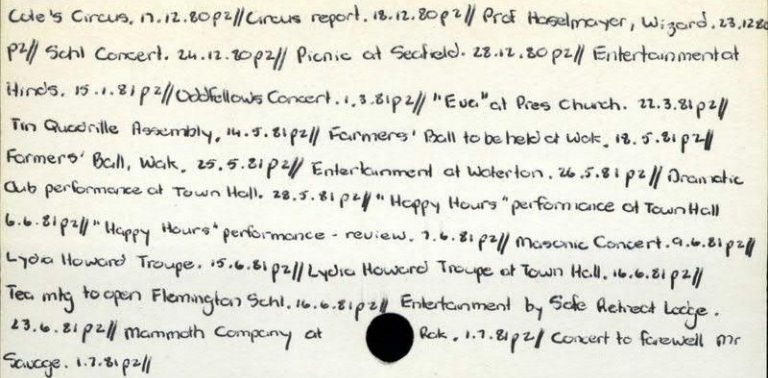 Cole's Circus. 17.12.80p2//Circus report. 18.12.80p2// Prof Haselmayer, Wizard. 23.1280
p2// Schl Concert. 24.12.80p2// Picnic at Seafield. 28.12.80p2// Entertainment at
Hinds. 15.1.81p2//Oddfellows Concert. 1.3.81p2// "Eva" at Pres Church. 22.3.81p2//
Tin Quadrille Assembly. 14.5.81p2// Farmers' Ball to be held at Wak. 18.5.81p2//
Farmers' Ball, Wak. 25.5.81p2// Entertainment at Waterton. 26.5.81p2// Dramatic
Club performance at Town Hall. 28.5.81p2// "Happy Hours" performance at Town Hall
6.6.81p2// "Happy Hours" performance - review. 7.6.81p2// Masonic Concert. 9.6.81p2//
Lydia Howard Troupe. 15.6.81p2// Lydia Howard Troupe at Town Hall. 16.6.81p2//
Tea mtg to open Flemington Schl. 16.6.81p2// Entertainment by Safe Retreat Lodge.
23.6.81p2// Mammoth Company at Rak. 1.7.81p2/ Concert to farewell Mr
Savage. 1.7.81p2//